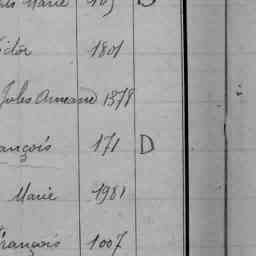 Marie 105 D
ictor 1801
Jules Armand 1378
ançois 171 D
Marie 1981
François 1007